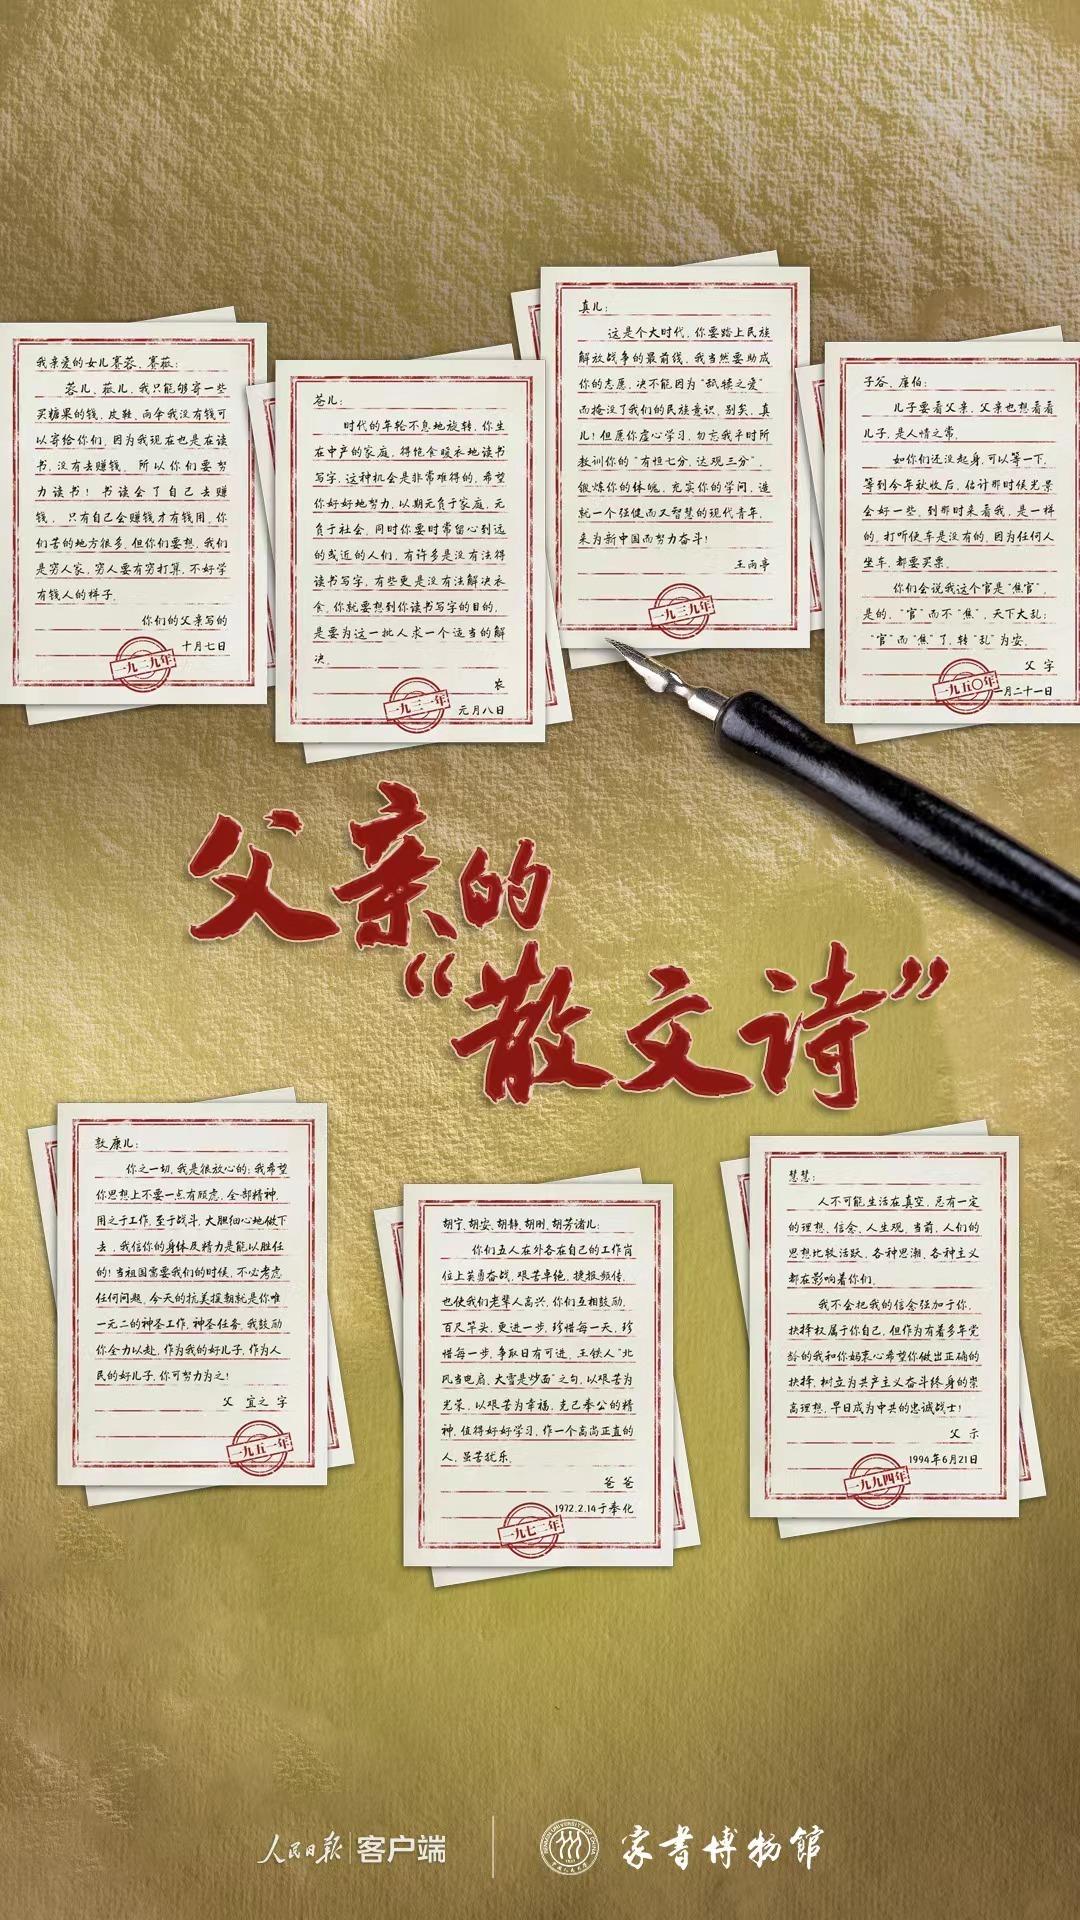 我亲爱的女儿赛蓉、赛菰：
蓉儿、菰儿，我只能够寄一些
买糖果的钱，皮鞋、雨伞我没有钱可
以寄给你们，因为我现在也是在读
书，没有去赚钱，所以你们要努
力读书！书读会了自己去赚
钱，只有自己会赚钱才有钱用，你
们苦的地方很多，但你们要想，我们
是穷人家，穷人要有穷打算，不好学
有钱人的样子。
你们的父亲写的
十月七日
一九二九年
苍儿：
时代的年轮不息地旋转，你生
在中产的家庭，得饱食暖衣地读书
写字，这种机会是非常难得的，希望
你好好地努力，以期无负于家庭，无
负于社会，同时你要时常留心到远
的或近的人们，有许多是没有法得
读书写字，有些更是没有法解决衣
食，你就要想到你读书写字的目的，
是要为这一批人求一个适当的解
决。
农
元月八日
一九三一年
真儿：
这是个大时代，你要踏上民族
解放战争的最前线，我当然要助成
你的志愿，决不能因为“舐犊之爱”
而掩没了我们的民族意识，别矣，真
儿！但愿你虚心学习，勿忘我平时所
教训你的“有恒七分，达观三分”，
锻炼你的体魄，充实你的学问，造
就一个强健而又智慧的现代青年，
来为新中国而努力奋斗！
王雨亭
一九三九年
子谷、廑伯：
儿子要看父亲，父亲也想看看
儿子，是人情之常。
如你们还没起身，可以等一下，
等到今年秋收后，估计那时候光景
会好一些，到那时来看我，是一样
的。打听便车是没有的，因为任何人
坐车，都要买票。
你们会说我这个官是“焦官”，
是的，“官”而不“焦”，天下大乱；
“官”而“焦”了，转“乱”为安。
父 字
一月二十一日
一九五〇年
父亲的
“散文诗”
敦康儿：
你之一切，我是很放心的；我希望
你思想上不要一点有顾虑，全部精神，
用之于工作，至于战斗，大胆细心地做下
去，我信你的身体及精力是能以胜任
的！当祖国需要我们的时候，不必考虑
任何问题，今天的抗美援朝就是你唯
一元二的神圣工作，神圣任务，我鼓励
你全力以赴，作为我的好儿子，作为人
民的好儿子，你可努力为之！
父 宜之 字
一九五一年
胡宁、胡安、胡静、胡刚、胡芳诸儿：
你们五人在外各在自己的工作岗
位上英勇奋战，艰苦卓绝，捷报频传，
也使我们老辈人高兴，你们互相鼓励，
百尺竿头，更进一步，珍惜每一天，珍
惜每一步，争取日有可进，王铁人“北
风当电扇，大雪是炒面”之句，以艰苦为
光荣，以艰苦为幸福，克己奉公的精
神，值得好好学习，作一个高尚正直的
人，虽苦犹乐。
爸爸
1972.2.14于奉化
一九七二年
慧慧：
人不可能生活在真空，总有一定
的理想、信念、人生观，当前，人们的
思想比较活跃，各种思潮、各种主义
都在影响着你们。
我不会把我的信念强加于你，
抉择权属于你自己，但作为有着多年党
龄的我和你妈衷心希望你做出正确的
抉择，树立为共产主义奋斗终身的崇
高理想，早日成为中共的忠诚战士！
父 示
1994年6月21日
一九九四年
人民日报 客户端
家书博物馆